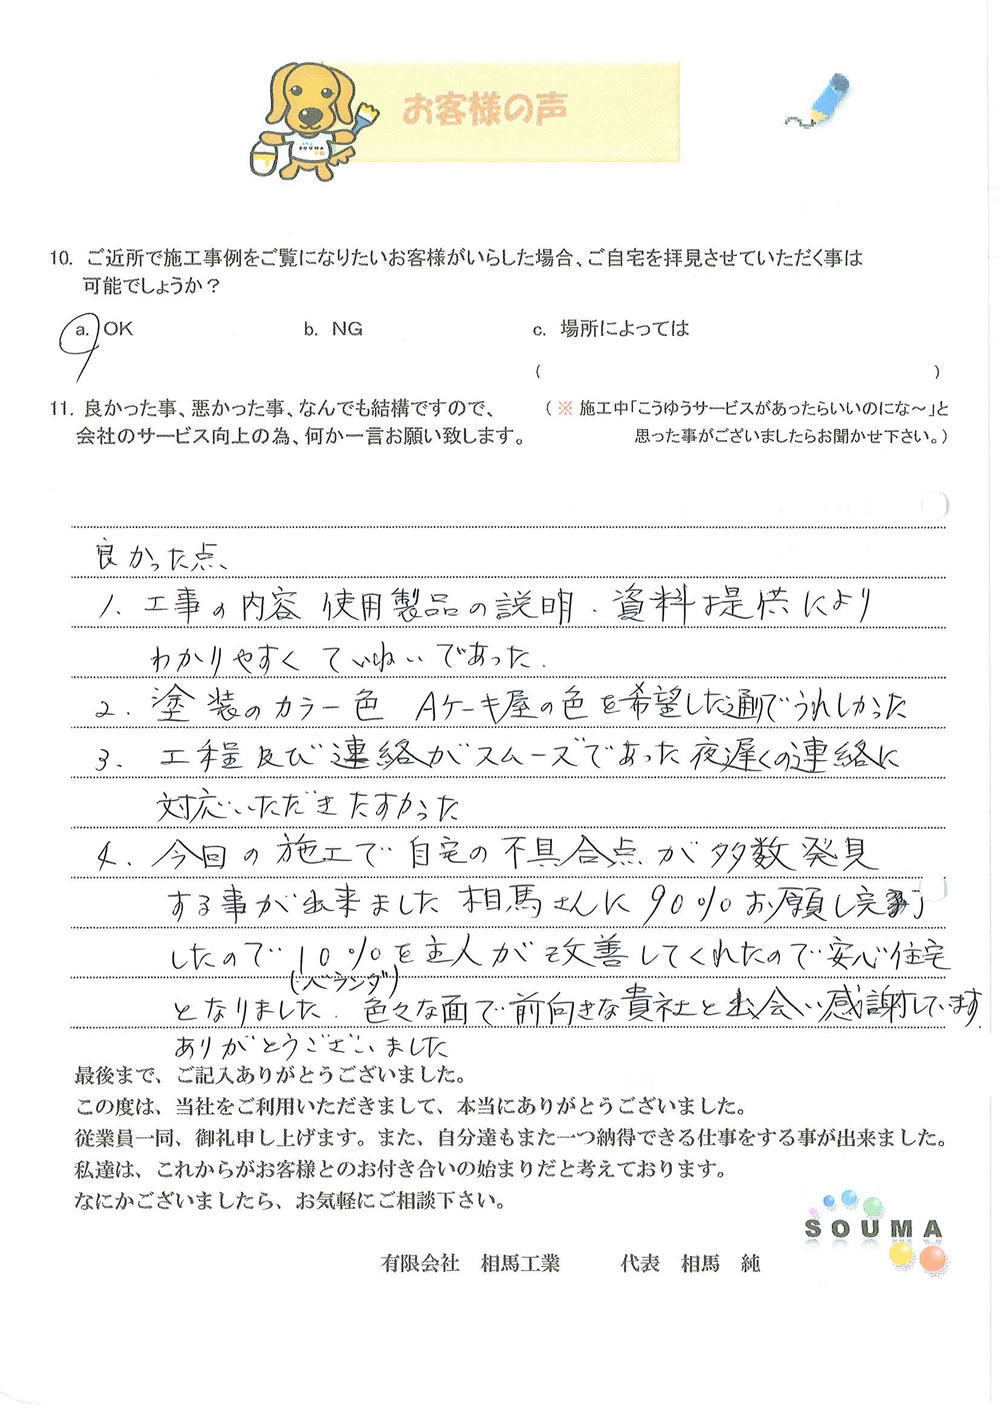 お客様の声
SOUMA
10. ご近所で施工事例をご覧になりたいお客様がいらした場合、ご自宅を拝見させていただく事は
可能でしょうか？
a. OK b. NG c. 場所によっては
( )
11. 良かった事、悪かった事、なんでも結構ですので、 （※ 施工中「こうゆうサービスがあったらいいのにな～」と
会社のサービス向上の為、何か一言お願い致します。 思った事がございましたらお聞かせ下さい。）
良かった点、
1. 工事の内容 使用製品の説明．資料提供により
わかりやすく ていねいであった．
2. 塗装のカラー色 Aケーキ屋の色を希望した通でうれしかった
3. 工程及び連絡がスムーズであった 夜遅くの連絡に
対応いただきたすかった
4. 今回の施工で自宅の不具合点が多数発見
する事が出来ました 相馬さんに90%お願し完了
したので 10%を主人が改善してくれたので安心住宅
(ベランダ)
となりました．色々な面で前向きな貴社と出会い感謝しています．
ありがとうございました
最後まで、ご記入ありがとうございました。
この度は、当社をご利用いただきまして、本当にありがとうございました。
従業員一同、御礼申し上げます。また、自分達もまた一つ納得できる仕事をする事が出来ました。
私達は、これからがお客様とのお付き合いの始まりだと考えております。
なにかございましたら、お気軽にご相談下さい。
SOUMA
有限会社 相馬工業 代表 相馬 純